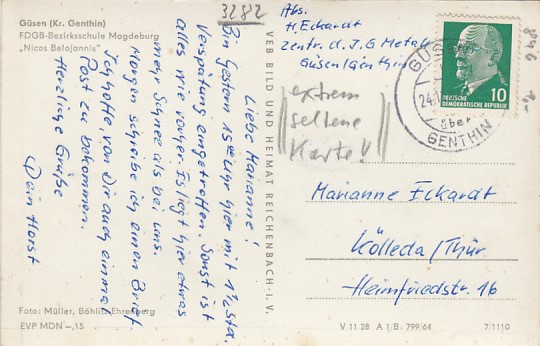 Güsen (Kr. Genthin)
FDGB-Bezirksschule Magdeburg
„Nicos Belojannis"
3282
Abs.
H. Eckardt
Zentr. d. I.G Metall
Güsen/Genthin
GÜSEN
24.1
über
GENTHIN
10
DEUTSCHE
DEMOKRATISCHE REPUBLIK
1,-
Liebe Marianne!
Bin Gestern 15 Uhr hier mit 1½ Std.
Verspätung eingetroffen. Sonst ist
alles wie vorher. Es liegt hier etwas
mehr Schnee als bei uns.
Morgen schreibe ich einen Brief
Ich hoffe, von Dir auch einmal
Post zu bekommen.
Herzliche Grüße
Dein Horst
VEB BILD UND HEIMAT REICHENBACH i. V.
extrem
seltene
Karte!
Marianne Eckardt
Kölleda/Thür
Heimfriedstr. 16
Foto: Müller, Böhlitz-Ehrenberg
EVP MDN –,15
V 11 28 A 1/B 799/64
7/1110